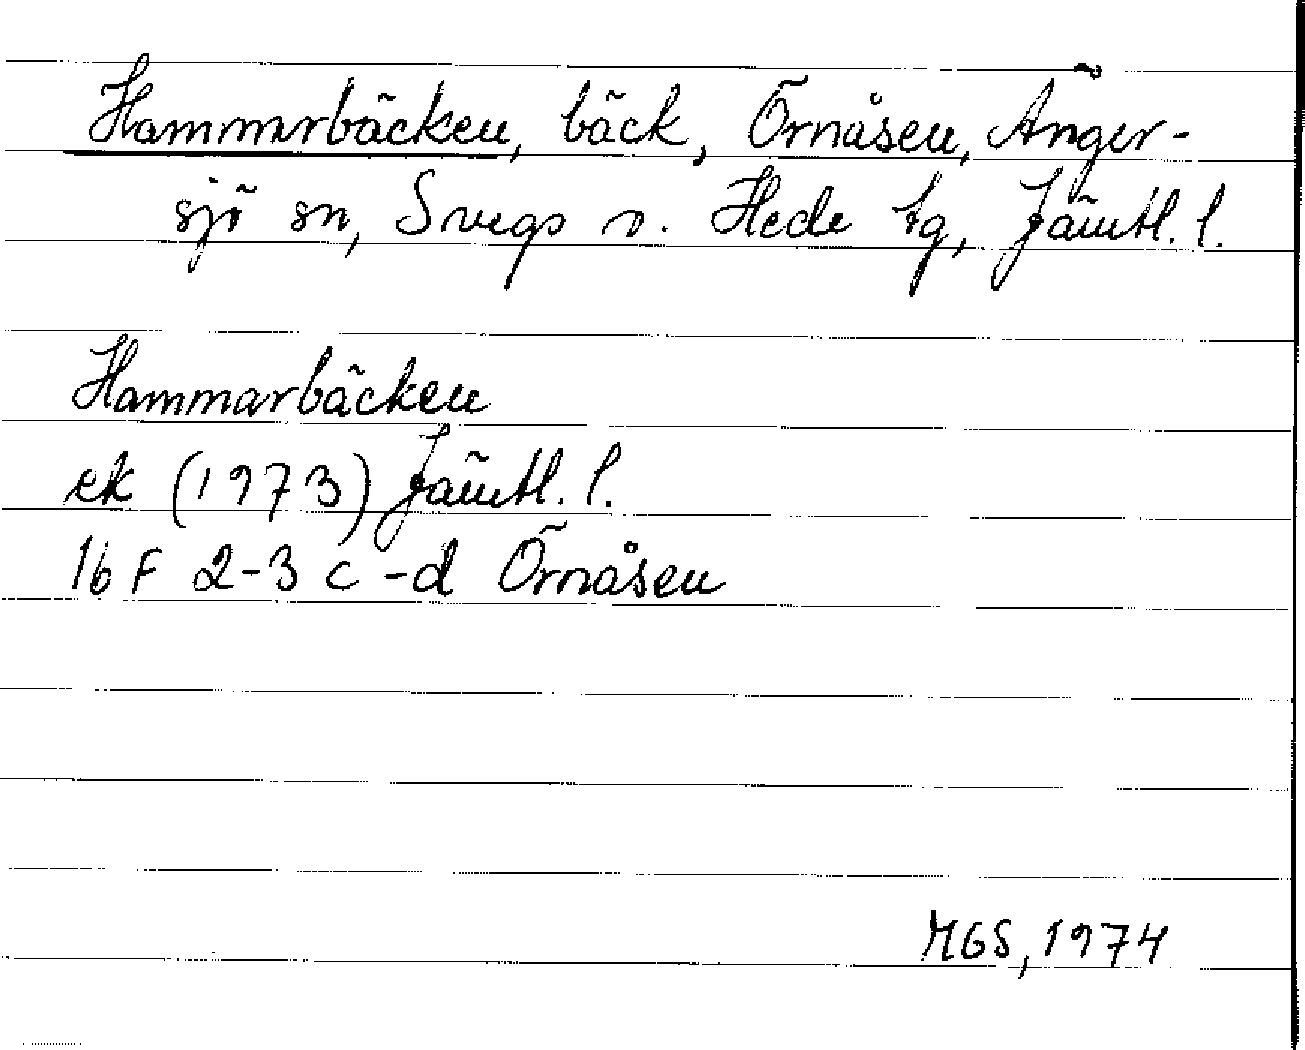 Hammarbäcken, bäck, Örnåsen, Änger-
sjö sn, Svegs o. Hede tg, Jämtl. l.
Hammarbäcken
ek (1973) Jämtl. l.
16 F 2-3 c-d Örnåsen
MGS, 1974